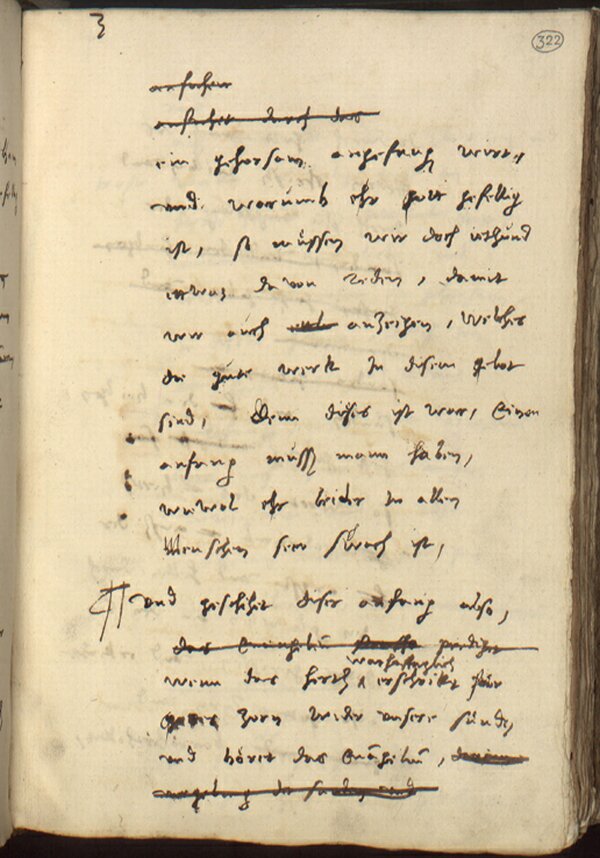 3
322
anfahen
anfahet durch das
ein gehorsam angefangen wirt,
und warumb ehr gott gefellig
ist, so müssen wir doch
etwas davon reden, damit
wir auch anzeigen, welches
die gute werk in disem gebot
sind, Denn dises ist war, Einen
anfang muss mann haben,
wiewol ehr leider in allen
Menschen seer schwach ist,
Und geschihet diser anfang also,
das Evangelium prediget
warhafftiglich
wenn das hertz erschrikt für
gottes zorn wider unsere sünde,
und höret das Evangelium,